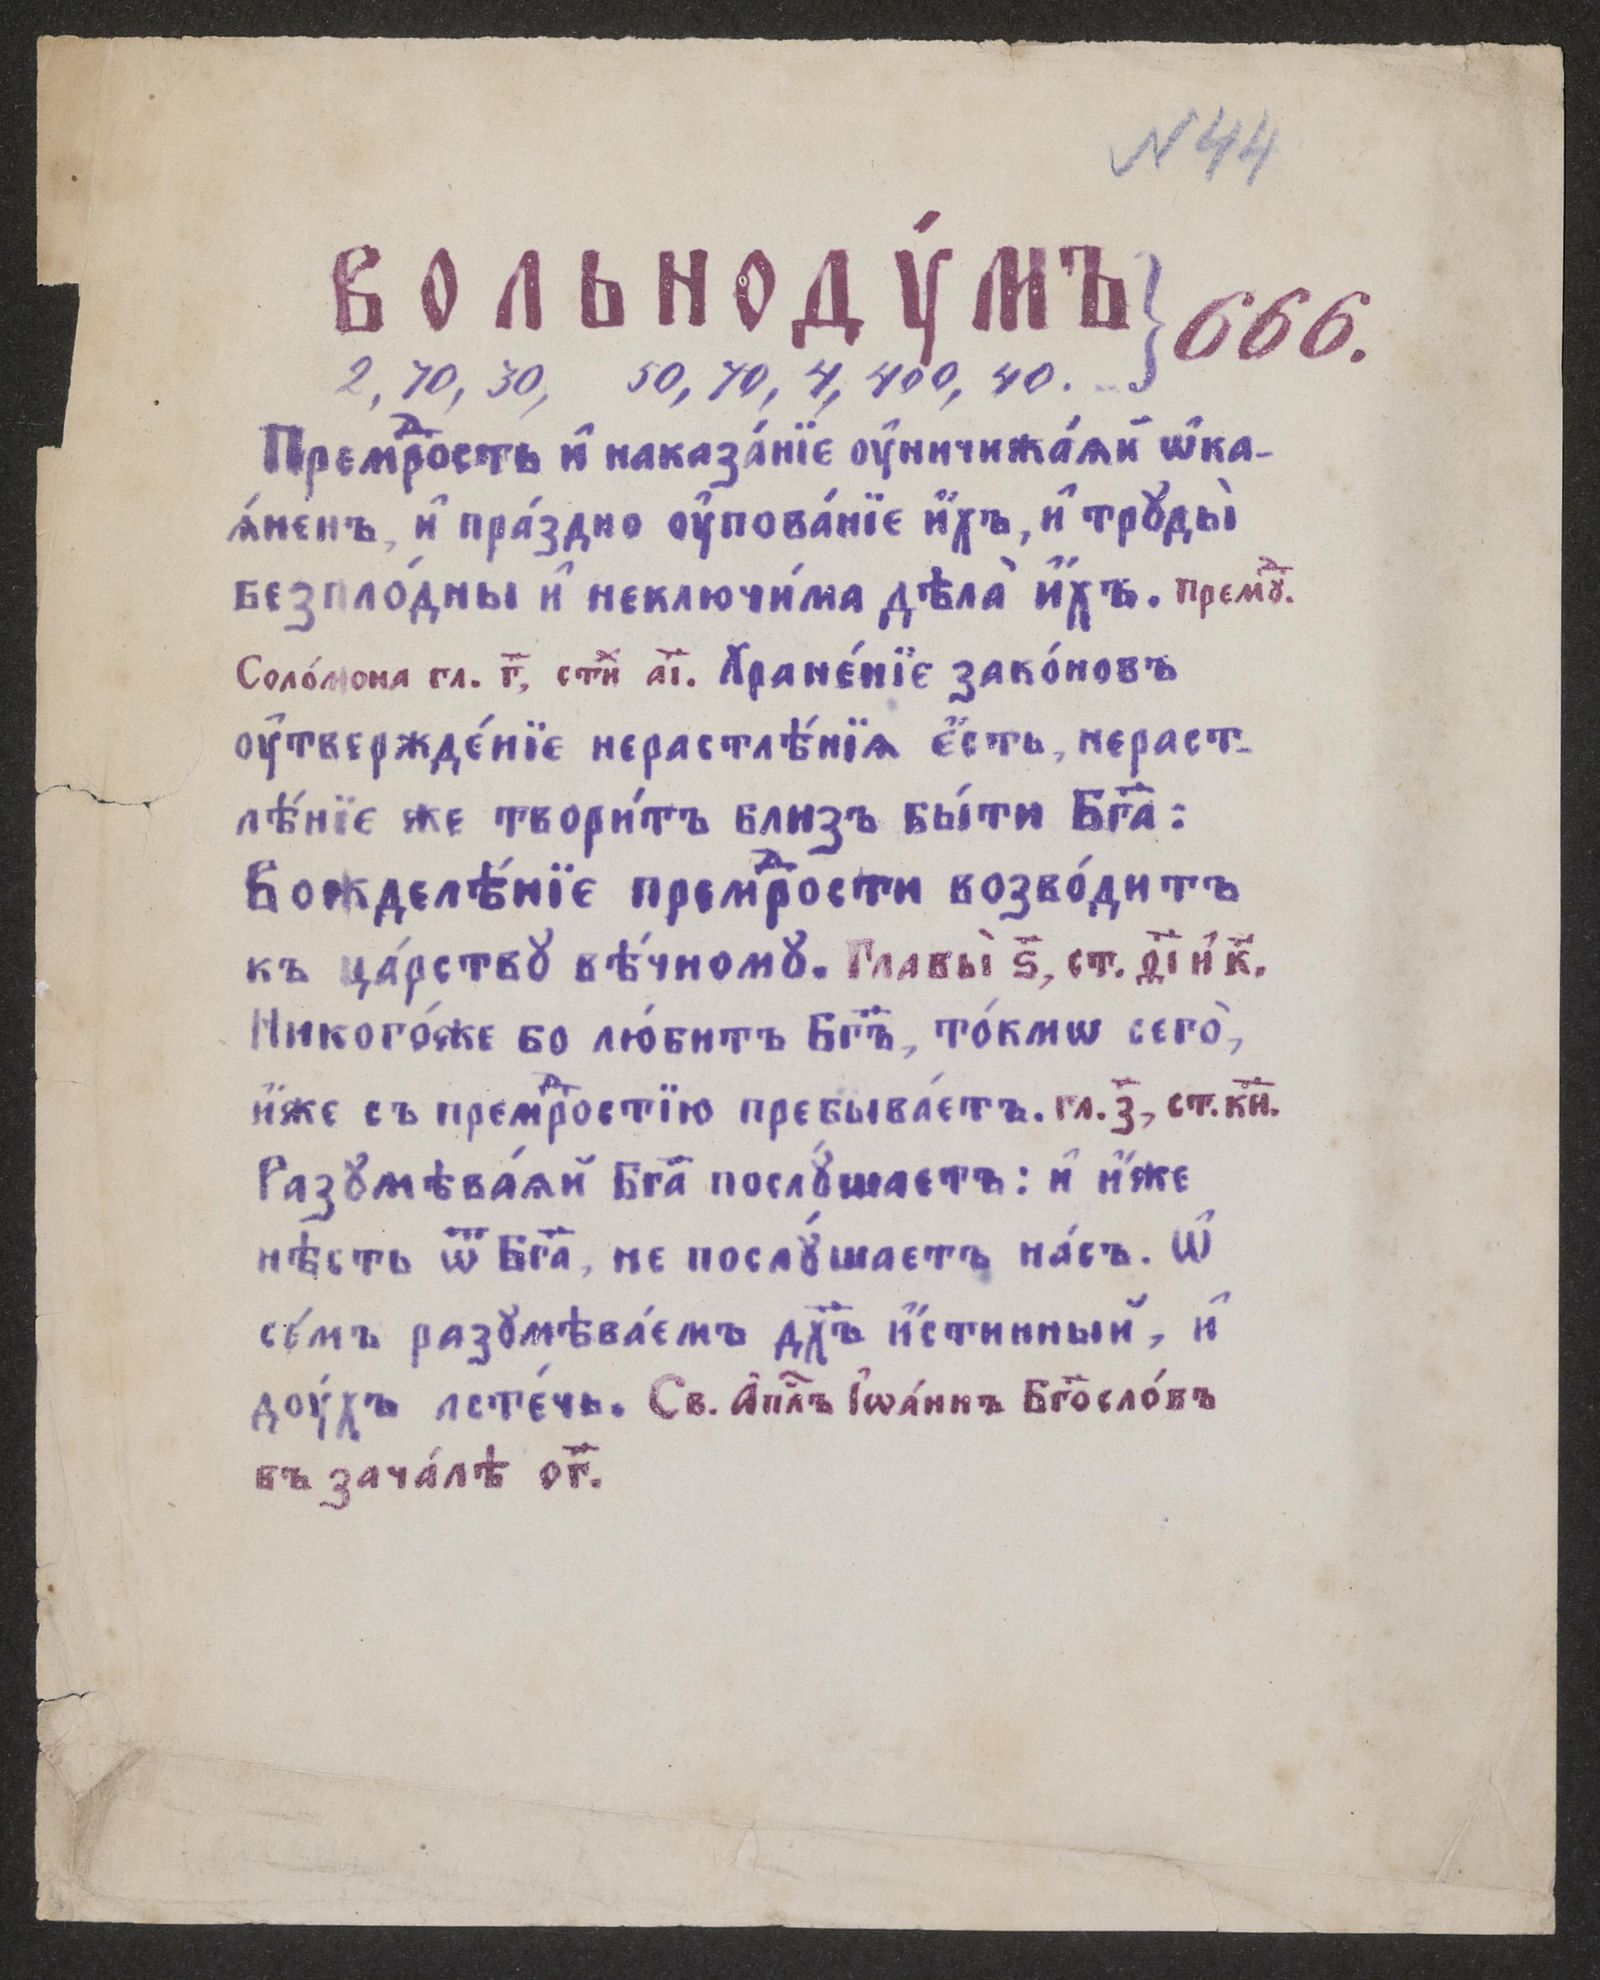 N 44
ВОЛЬНОДꙊ́МЪ } 666.
2, 70, 30, 50, 70, 4, 400, 40.
Премⷣрость и҆ наказа́нїе оу҆ничижа́ѧй ѡ҆ка-
ѧ́ненъ, и҆ пра́здно оу҆пова́нїе и҆́хъ, и҆ трꙋды̀
безпло́дны и҆ неключи́ма дѣла̀ и҆́хъ. Премⷣꙋ.
Соло́мона гл. г҃, стⷯи а҃і. Хране́нїе зако́новъ
оу҆твержде́нїе нерастлѣ́нїѧ є҆́сть, нераст-
лѣ́нїе же твори́тъ близъ бы́ти Бг҃а:
Вожделѣ́нїе премⷣрости возво́дитъ
къ ца́рствꙋ вѣ́чномꙋ. Главы̀ ѕ҃, ст. д҃і и҆ к҃.
Никого́же бо лю́битъ Бг҃ъ, то́кмѡ сего̀,
и҆́же съ премⷣростїю пребыва́етъ. гл. з҃, ст. к҃и.
Разꙋмѣва́ѧй Бг҃а послꙋ́шаетъ: и҆ и҆́же
нѣ́сть ѿ Бг҃а, не послꙋ́шаетъ на́съ. Ѡ҆
се́мъ разꙋмѣва́емъ дх҃ъ и҆́стинный, и҆
доу́хъ лсте́чь. Св. А҆пⷭ҇лъ І҆ѡа́ннъ Бг҃осло́въ
въ зача́лѣ о҃г.